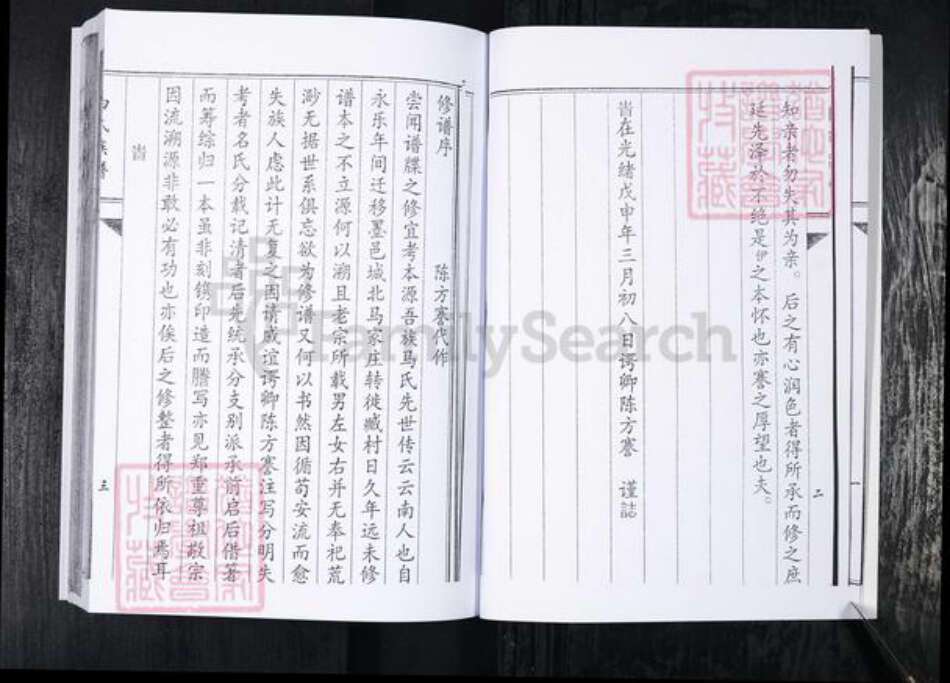 知亲者勿失其为亲。后之有心润色者得所承而修之庶
廷先泽于不绝是伊之本怀也亦謇之厚望也夫。
二
皆在光绪戊申年三月初八日谔卿陈方謇 谨誌
修谱序 陈方謇代作
尝闻谱牒之修宜考本源吾族马氏先世传云云南人也自
永乐年间迁移墨邑城北马家庄转徙臧村日久年远未修
谱本之不立源何以溯且老宗所载男左女右并无奉祀荒
渺无据世系俱忘欲为修谱又何以书然因循苟安流而愈
失族人虑此计无复之因请戚谊谔卿陈方謇注写分明失
考者名氏分载记清者后先统承分支别派承前启后借箸
而筹综归一本虽非刻镌印造而誊写亦见郑重尊祖敬宗
因流溯源非敢必有功也亦俟后之修整者得所依归焉耳
皆
三
FamilySearch